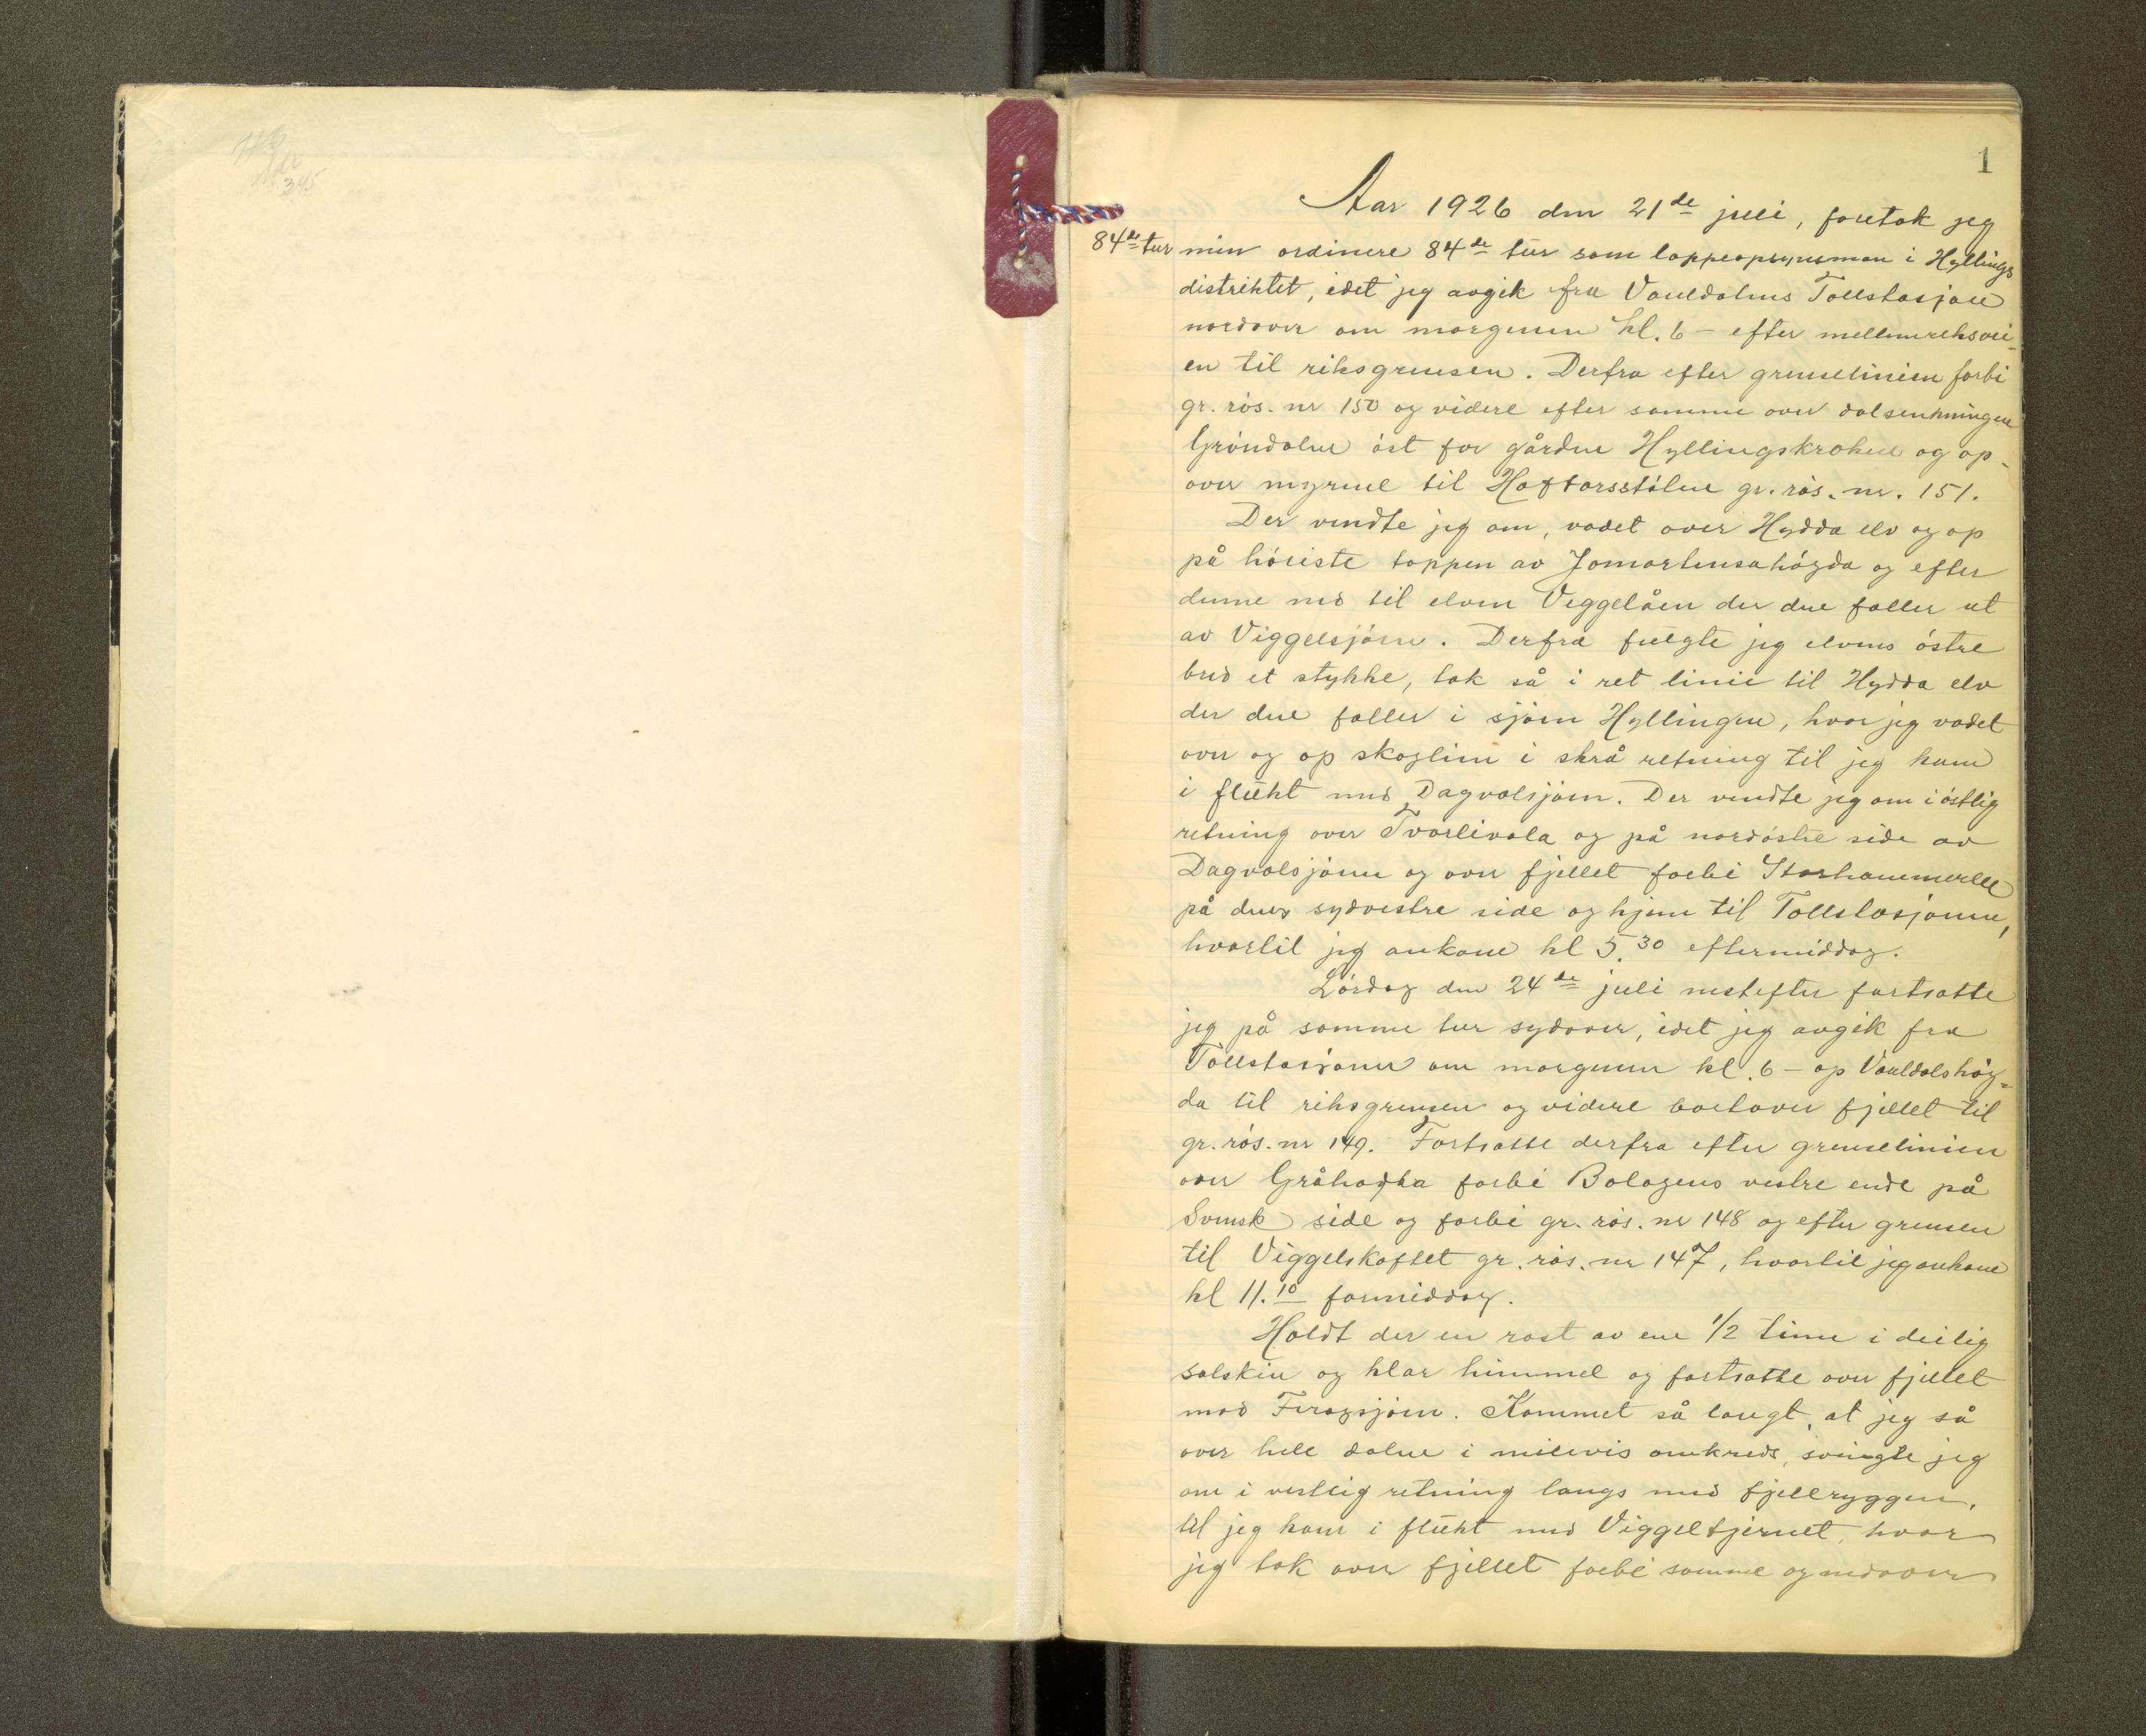 345
1
Aar 1926 den 21de juli, foretok jeg
84de tur
min ordinere 84de tur som lappeopsynsman i Hyllings
distriktet, idet jeg avgik fra Vauldalens Tollstasjon
nordover om morgenen kl. 6 - efter mellemriksvei-
en til riksgrensen. Derfra efter grenselinien forbi
gr. røs. nr 150 og videre efter samme over dalsenkningen
Grøndalen øst for gården Hyllingskroken og op-
over myrene til Haftorsstølen gr. røs. nr. 151.
Der vendte jeg om, vadet over Hydda elv og op
på høieste toppen av Jomartensahøgda og efter
denne ned til elven Viggelåen der den faller ut
av Viggelsjøen. Derfra fulgte jeg elvens østre
bred et stykke, tok så i ret linie til Hydda elv
der den faller i sjøen Hyllingen, hvor jeg vadet
over og op skoglien i skrå retning til jeg kom
i flukt med Dagvolsjøen. Der vendte jeg om i østlig
retning over Tvorlivola og på nordøstre side av
Dagvolsjøen og over fjellet forbi Storhammeren
på dens sydvestre side og hjem til Tollstasjonen,
hvortil jeg ankom kl 5.30 eftermiddag.
Lørdag den 24de juli nestefter fortsatte
jeg på samme tur sydover, idet jeg avgik fra
Tollstasjonen om morgenen kl. 6 - op Vauldalshøg-
da til riksgrensen og videre bortover fjellet til
gr. røs. nr 149. Fortsatte derfra efter grenselinien
over Gråhogda forbi Bolagens vestre ende på
Svensk side og forbi gr. røs. nr 148 og efter grensen
til Viggelskaftet gr. røs. nr 147, hvortil jeg ankom
kl 11.10 formiddag.
Holdt der en rast av en 1/2 time i deilig
solskin og klar himmel og fortsatte over fjellet
mod Feragsjøen. Kommet så langt, at jeg så
over hele dalen i milevis omkreds, svingte jeg
om i vestlig retning langs med fjellryggen,
til jeg kom i flukt med Viggeltjernet, hvor
jeg tok over fjellet forbi samme og nedover